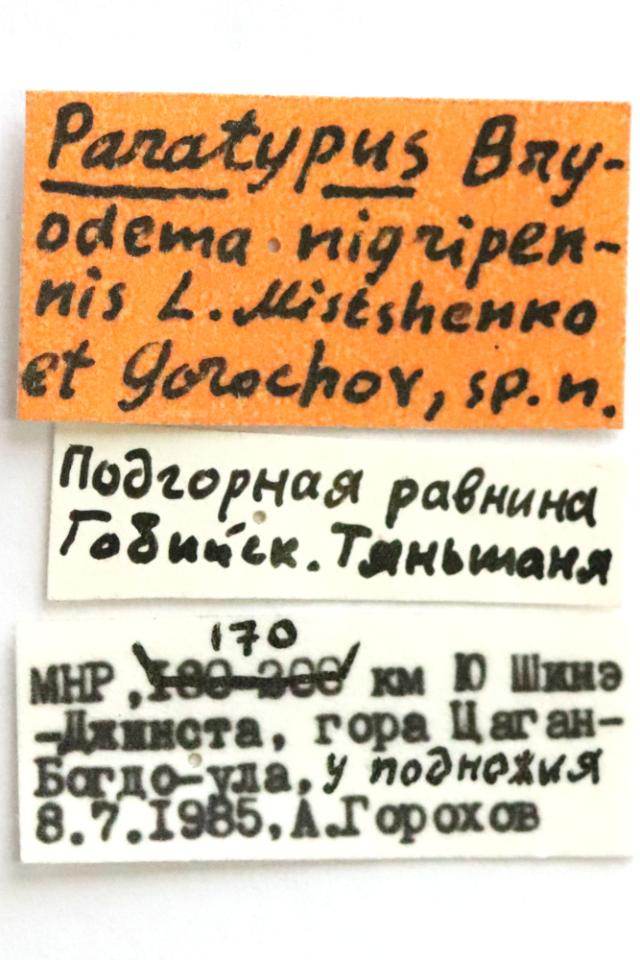 Paratypus Bry-
odema nigripen-
nis L. Mistshenko
et Gorochov, sp. n.
Подгорная равнина
Гобийск. Тяньшаня
170
МНР, 180-200 км Ю Шинэ
-Джинста, гора Цаган-
Богдо-ула, у подножия
8.7.I985, А.Горохов